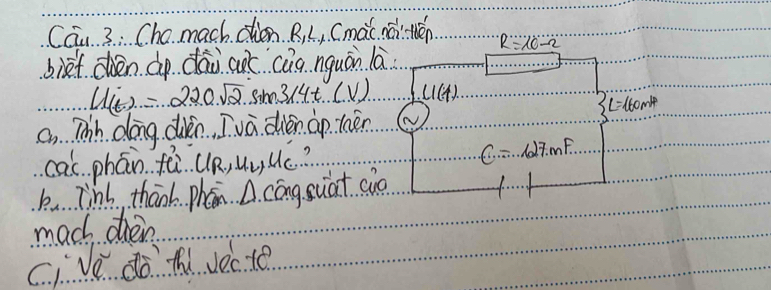 Câu 3: Cho mạch điện R, L, C mắc nối tiếp
biết điện áp đầu cực của nguồn là:
U(t) = 220√2 sin 314t (V)
a, Tính dòng điện, I và điện áp trên
các phần tử UR, UL, UC?
b, Tính thành phần Δ công suất của
mạch điện
C, Vẽ đồ thị véc tơ
R=10Ω
U(t)
~
C = 127mF